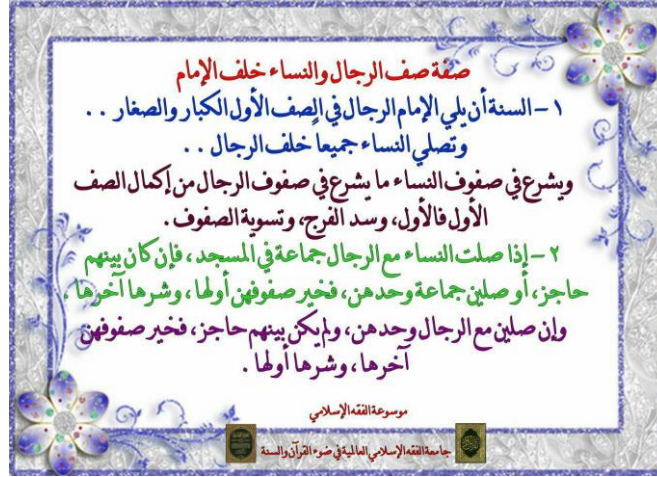 صفة صف الرجال والنساء خلف الإمام
١ - السنة أن يلي الإمام الرجال في الصف الأول الكبار والصغار . .
وتصلي النساء جميعاً خلف الرجال . .
ويشرع في صفوف النساء ما يشرع في صفوف الرجال من إكمال الصف
الأول فالأول، وسد الفرج، وتسوية الصفوف .
٢ - إذا صلت النساء مع الرجال جماعة في المسجد، فإن كان بينهم
حاجز، أو صلين جماعة وحدهن، فخير صفوفهن أولها، وشرها آخرها .
وإن صلين مع الرجال وحدهن، ولم يكن بينهم حاجز، فخير صفوفهن
آخرها، وشرها أولها .
موسوعة الفقه الإسلامي
جامعة الفقه الإسلامي العالمية في ضوء القرآن والسنة